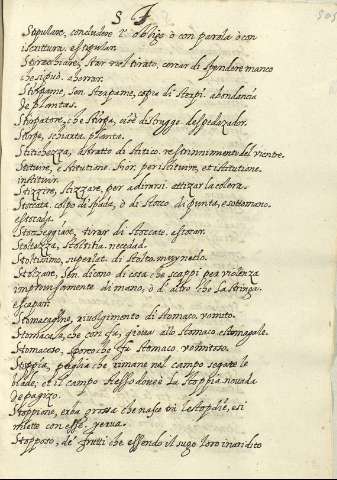 S T
505
Stipulare, concludere l'obligo ò con parola ò con
iscrittura. estipular.
Stiracchiare, star nel tirato, cercar di spendere manco
che si può. ahorrar.
Stirpame, son sterpame, copia di sterpi. abondancia
de plantas.
Stirpatore, che stirpa, cioè distrugge. despedazador.
Stirpe, schiatta. planta.
Stitichezza, astratto di stitico. restrinnimento del vientre.
Statuire, e stitutione. fior. per istituire, et istitutione.
instituir.
Stizzire, stizzare, per adirarsi. attizar la colera.
Stoccata, colpo di spada, ò di stocco di punta, e sottomano.
estocada.
Stoccheggiare, tirar di stoccate. estocar.
Stoltezza, stoltitia. necedad.
Stoltissimo, superlat. di stolto. muy necio.
Stolzare, son dicono di cosa che scappi per violenza
improvisamente di mano, ò d'altro che la stringa.
escapar.
Stomacaggine, rivolgimento di stomaco. vomito.
Stomacale, che con fà, giova allo stomaco. estomagale.
Stomacoso, sporco che fà stomaco. vomitoso.
Stoppia, paglia che rimane nel campo segate le
biade; et il campo stesso dove è la stoppia. novada
de pagizo.
Stoppione, erba grossa che nasce tra le stoppie, e si
miete con esse. yerva.
Stopposo, de' frutti che essendo il sugo loro inaridito